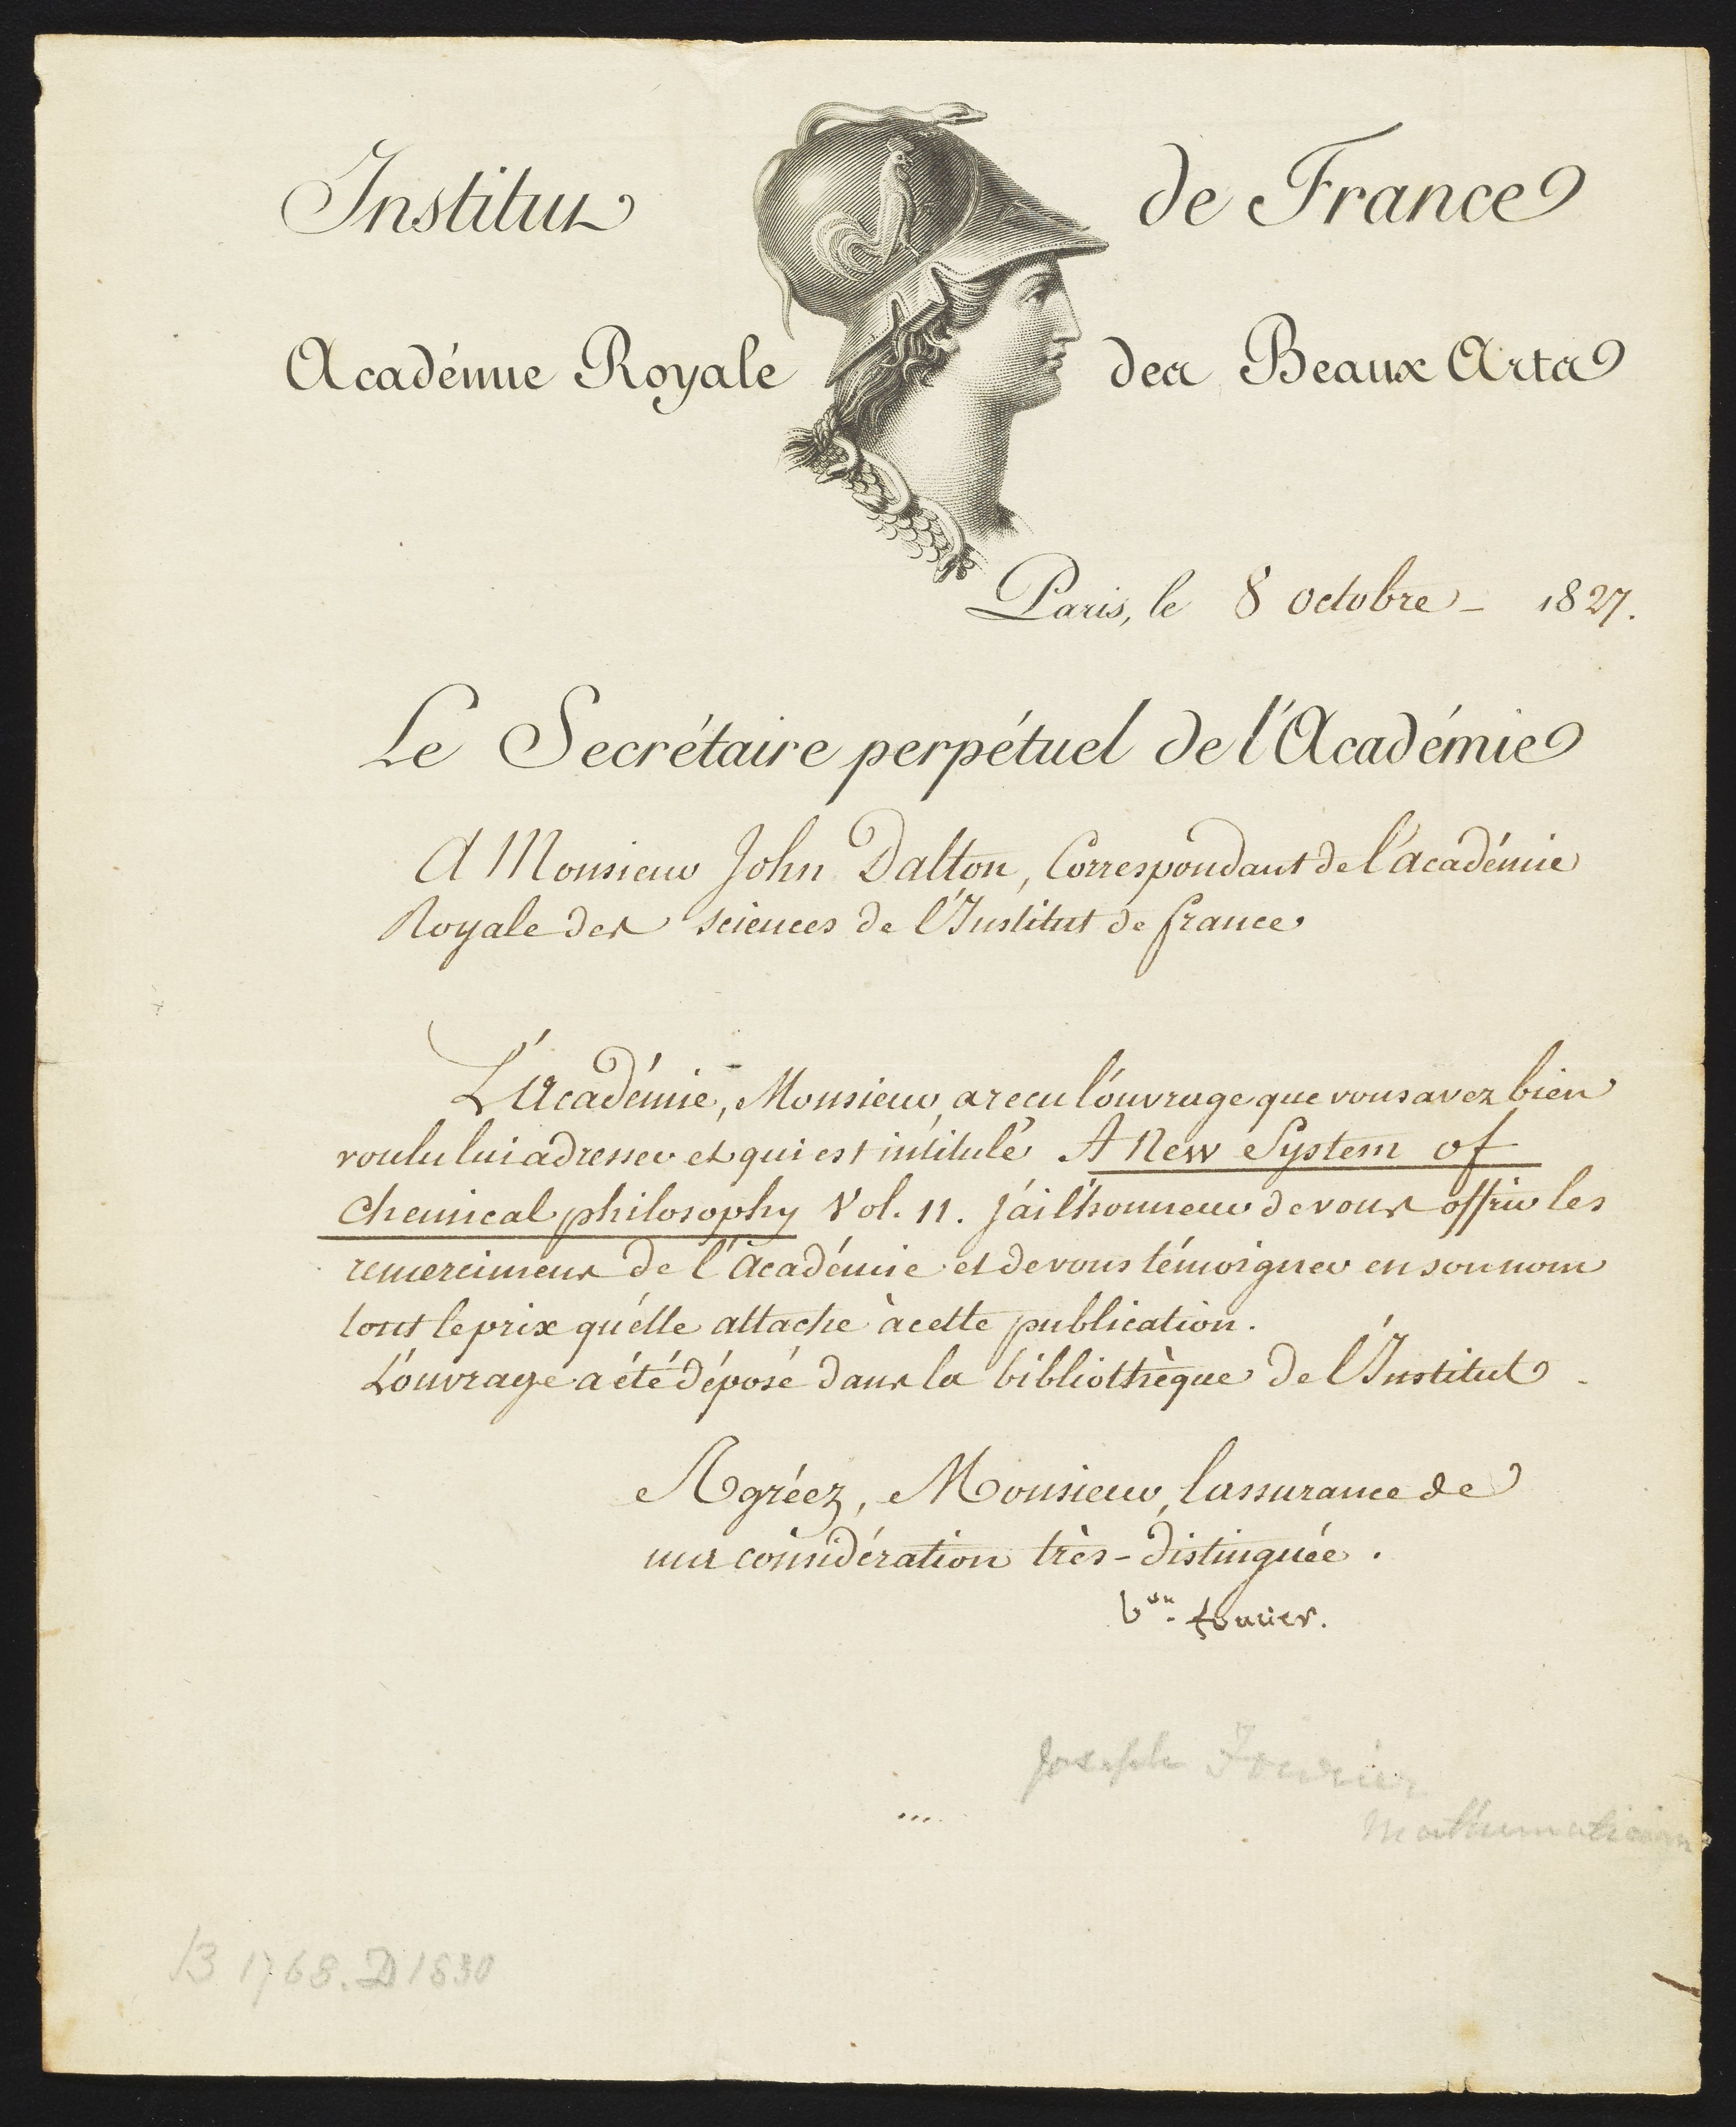 Institut de France
Académie Royale des Beaux Arts
Paris, le 8 octobre - 1827.
Le Secrétaire perpétuel de l'Académie
A Monsieur John Dalton, Correspondant de l'académie
Royale des sciences de l'Institut de france
L'Académie, Monsieur, a recu l'ouvrage que vous avez bien
voulu lui adresser et qui est intitulé A New System of
Chemical philosophy Vol. 11. j'ai l'honneur de vous offrir les
remercimens de l'académie et de vous témoigner en son nom
tout le prix qu'elle attache à cette publication.
L'ouvrage a été déposé dans la bibliothèque de l'Institut -
Agréez, Monsieur, l'assurance de
ma considération très-distinguée.
b.on fourier.
Joseph Fourier
Mathematician
B 1768. D 1830